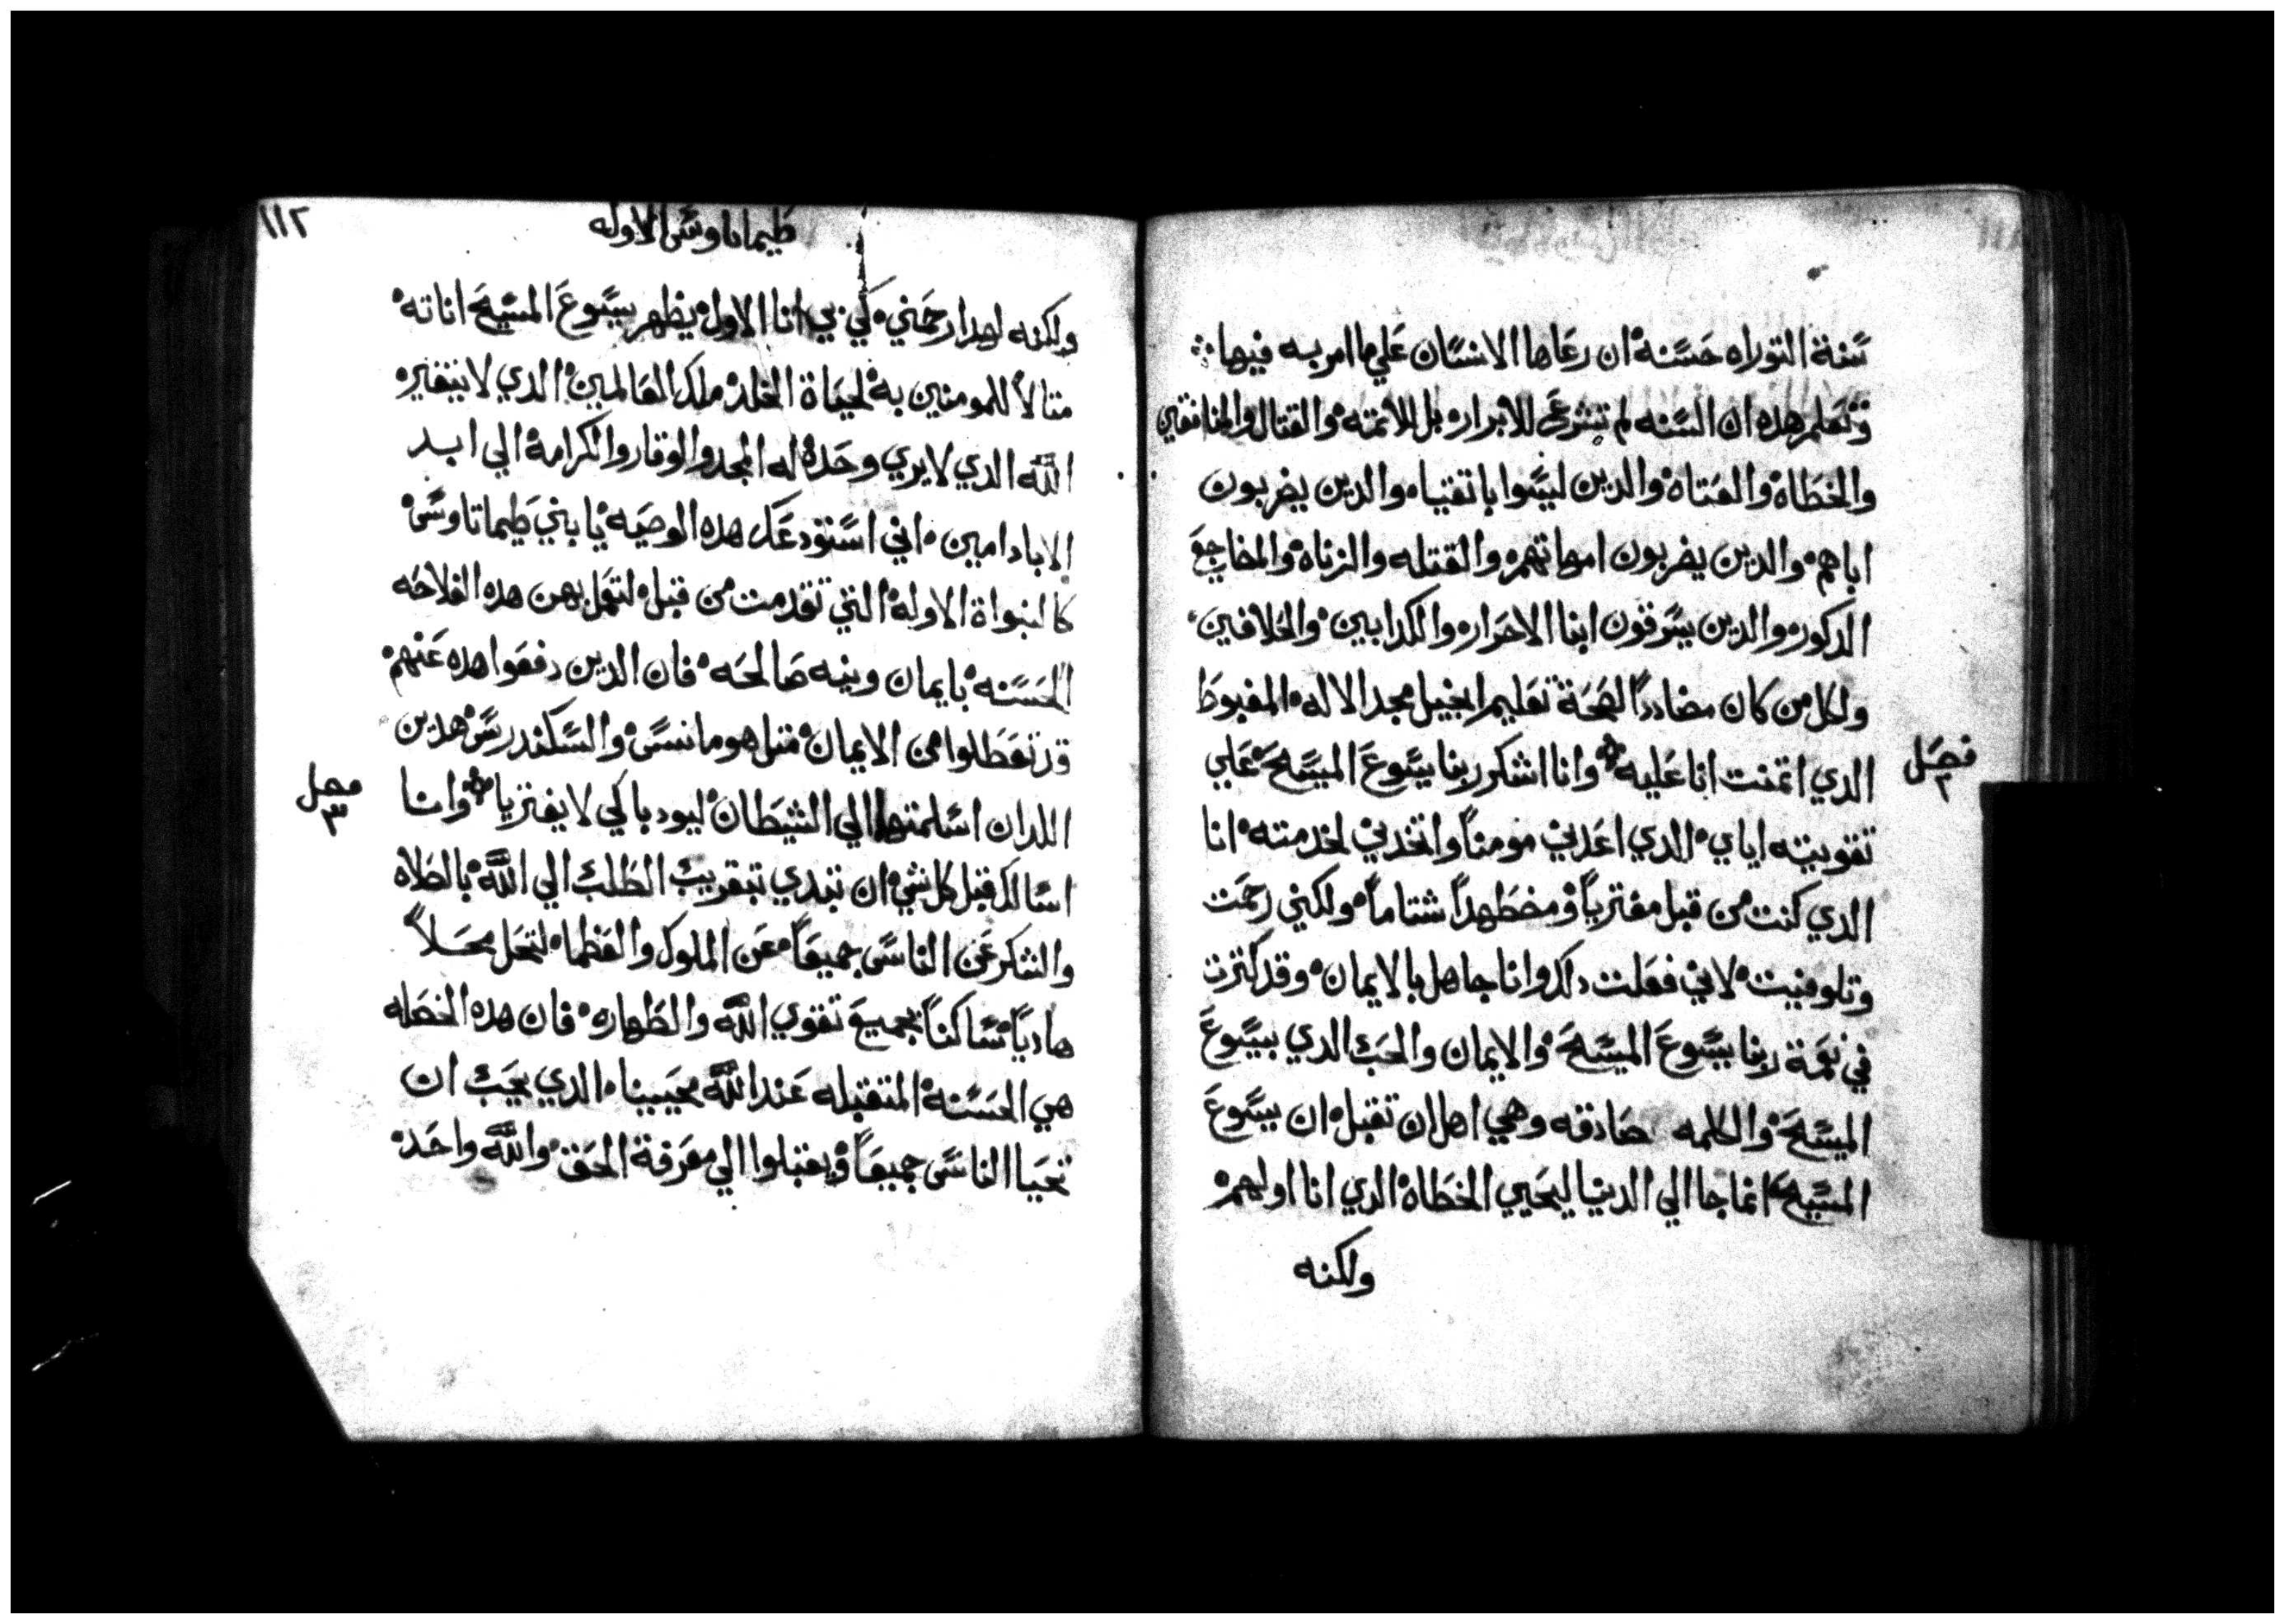 سنة التوراه حسنة ان رعاها الانسان علي ما امر به فيها
وتعلم هده ان السنه لم تشرع للابرار بل للاتمه والقتال والمنافقين
والخطاه والعتاه والدين ليسوا باتقياء والدين يضربون
اباهم والدين يضربون امهاتهم والقتله والزناه والمضاجع
الدكور والدين يسرقون ابنا الاحرار والكدابين والحلافين
ولكل من كان مضاددا لصحة تعليم انجيل مجد الاله المغبوط
فصل ٢
الدي اتمنت انا عليه وانا اشكر ربنا يسوع المسيح علي
تقويته اياي الدي اعدني مومنا واتخدني لخدمته انا
الدي كنت من قبل مفتريا ومضطهدا شتاما ولكني رحمت
وتلوفيت لاني فعلت دلك وانا جاهل بالايمان وقد كترت
في نعمة ربنا يسوع المسيح والايمان والحب الدي بيسوع
المسيح والكلمه صادقه وهي اهل ان تقبل ان يسوع
المسيح انما جا الي الدنيا ليحيي الخطاه الدي انا اولهم
ولكنه
١١٢
طيماتاوس الاوله
ولكنه لهدا رحمني كي بي انا الاول يظهر يسوع المسيح اناته
متالا للمومنين به لحياة الخلد ملك العالمين الدي لا يتغير
الله الدي لا يري وحده له المجد والوقار والكرامة الي ابد
الاباد امين اني استودعك هده الوصيه يا بني طيماتاوس
كالنبواة الاوله التي تقدمت من قبل لتعمل بهن هده الفلاحه
الحسنه بايمان ونيه صالحه فان الدين دفعوا هده عنهم
قد تعطلوا من الايمان متل هومانسس والسكندرس هدين
اللدان اسلمتهما الي الشيطان ليودبا كي لا يفتريا وانا
فصل ٣
اسالك قبل كل شي ان تبدي تبقريب الطلب الي الله بالطلاه
والشكر عن الناس جميعا عن الملوك والعظما لتحل محلا
هاديا ساكنا بجميع تقوي الله والطهاره فان هده الخصله
هي الحسنه المتقبله عند الله محيينا الدي يحب ان
تحيا الناس جميعا ويقبلوا الي معرفة الحق والله واحد